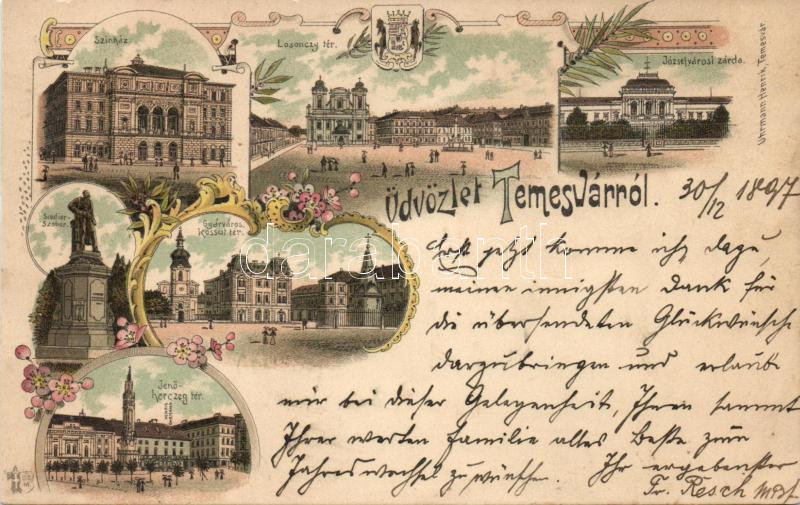 Szinház
Losonczy tér.
Józsefvárosi zárda.
Uhrmann Henrik, Temesvár
Üdvözlet Temesvárról.
30/12 1897
Scudier-
Szobor.
Gyárváros,
Kossut tér.
Jenő-
herczeg tér.
darabanth
Erst jetzt komme ich dazu,
meinen innigsten Dank für
die übersendeten Glückwünsche
darzubringen und erlaube
mir bei dieser Gelegenheit, Ihnen sammt
Ihrer werten Familie alles Beste zum
Jahreswechsel zu wünschen.
Ihr ergebenster
Fr. Resch